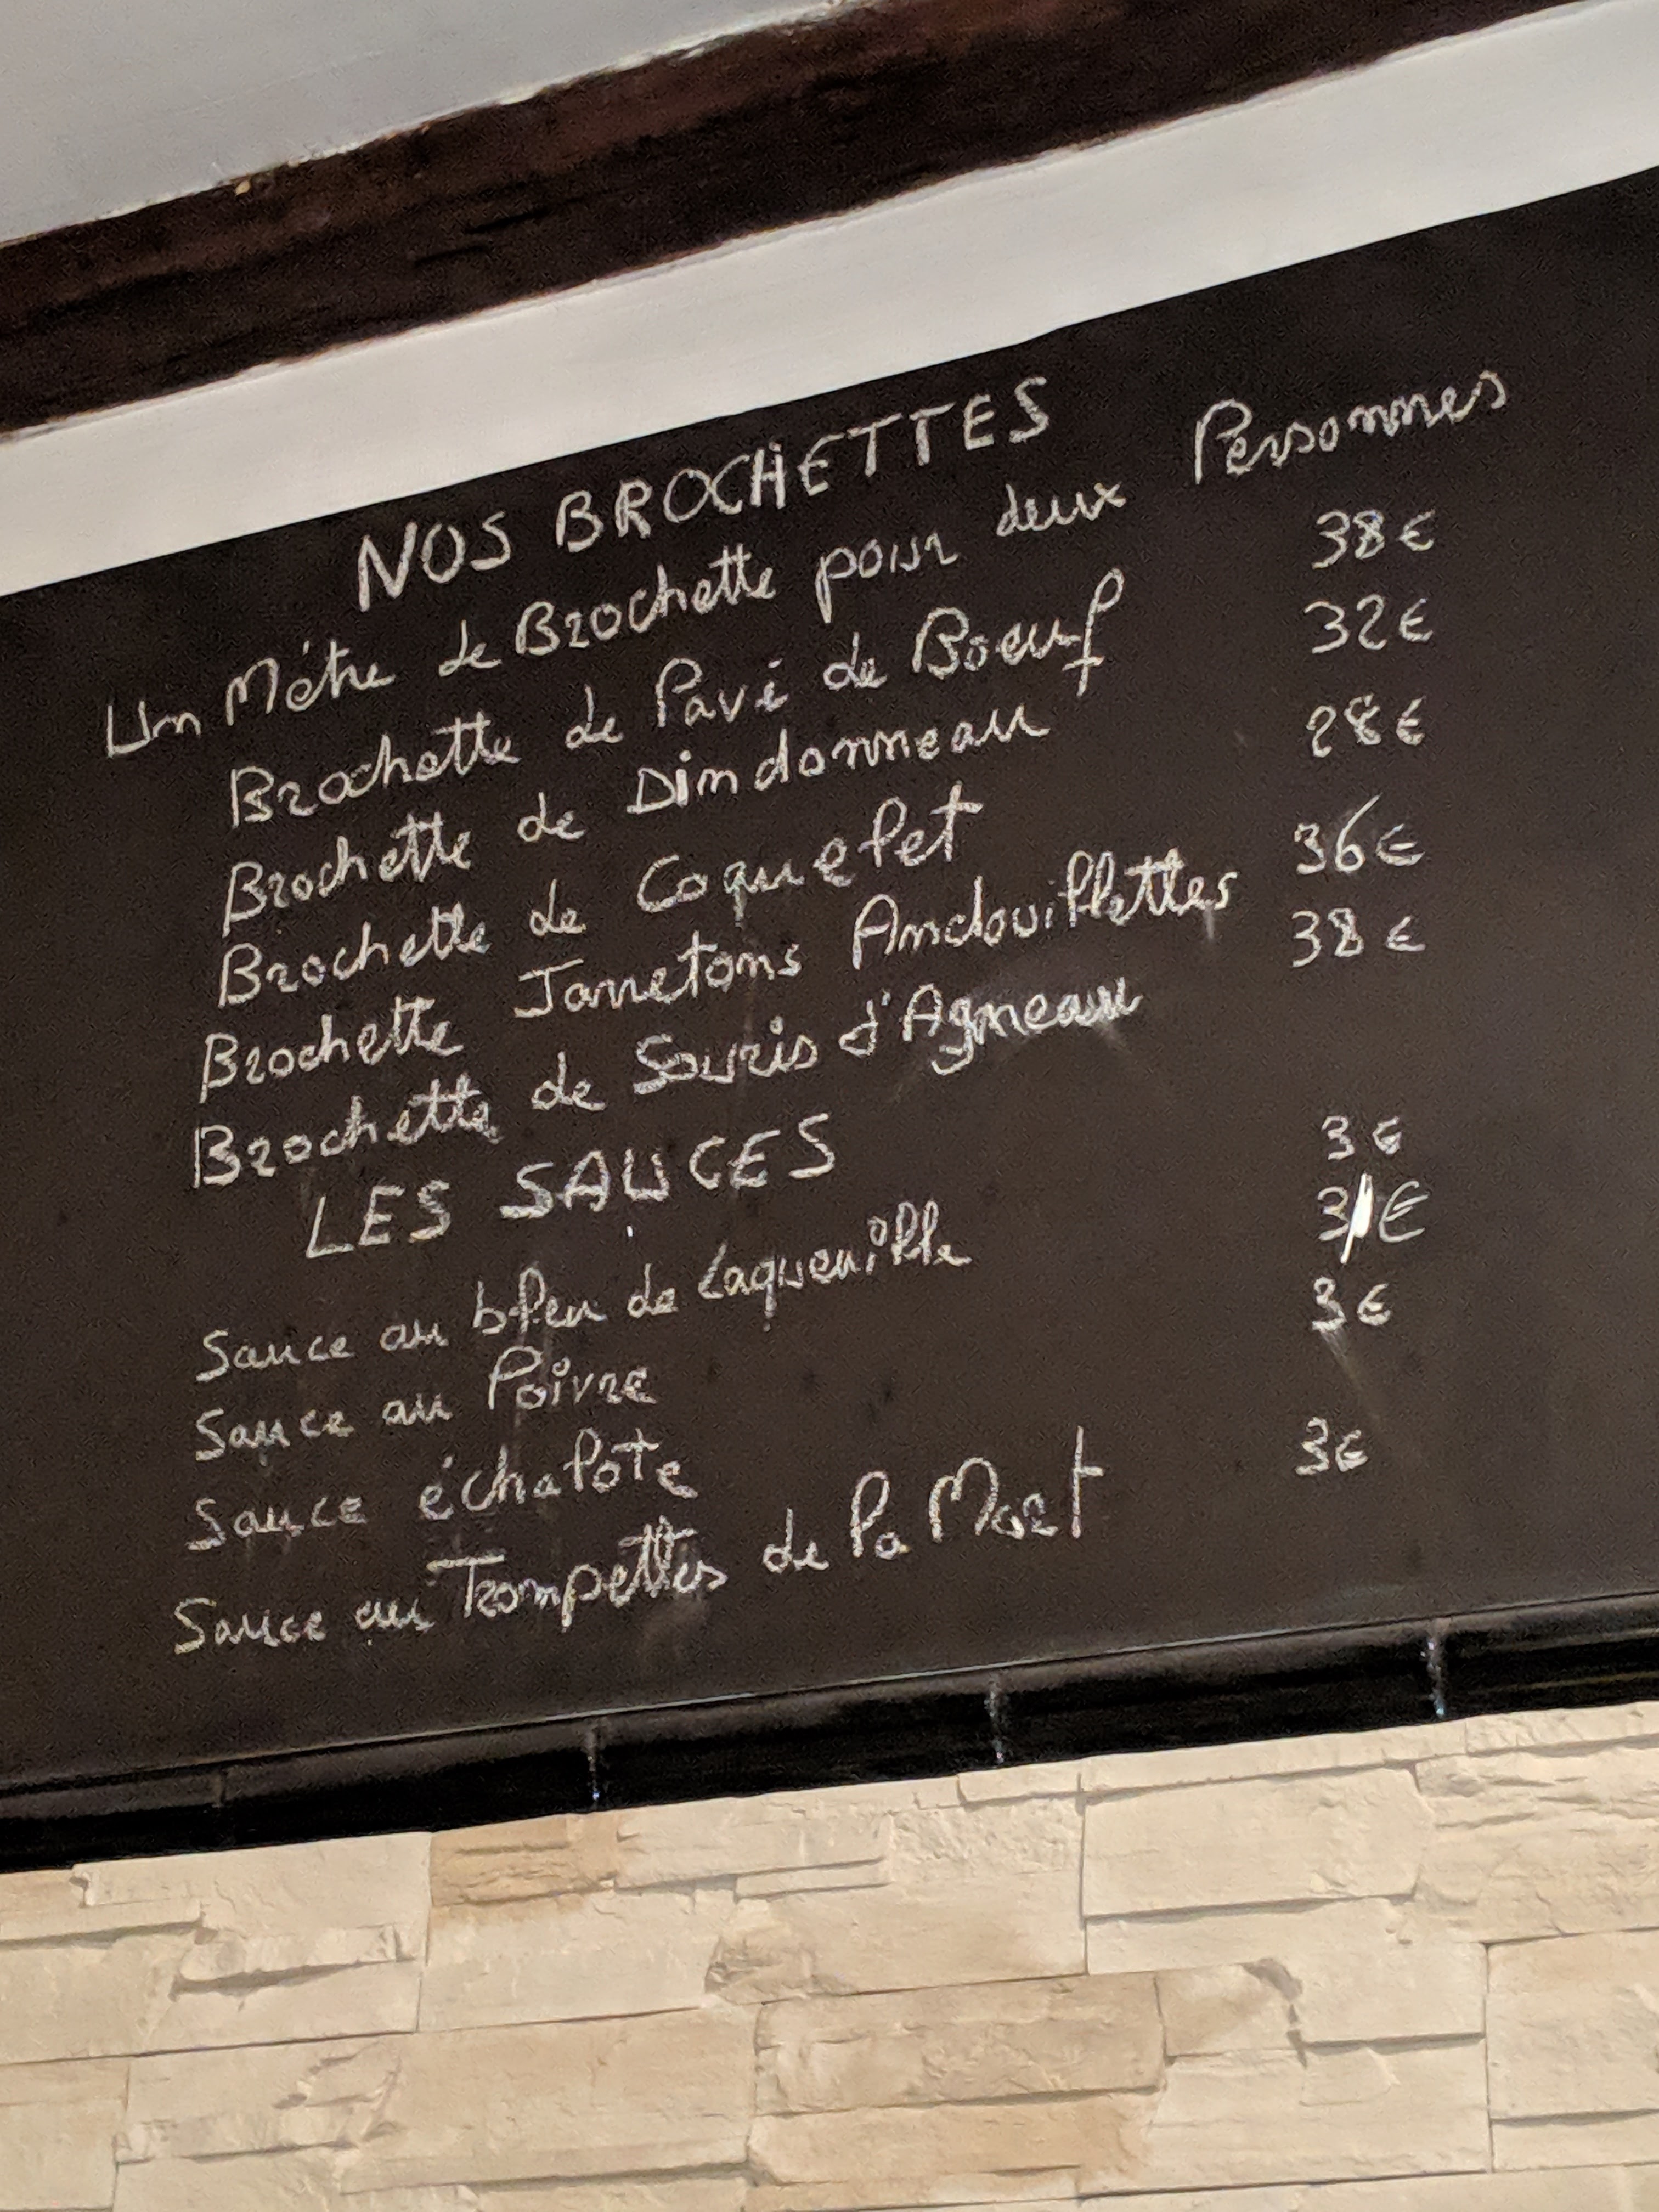 NOS BROCHETTES
Un Métre de Brochette pour deux Personnes
Brochette de Pavé de Boeuf 38€
Brochette de Dindonneau 32€
Brochette de Coquelet 28€
Brochette Jarretons Andouillettes 36€
Brochette de Souris d'Agneau 38€
LES SAUCES
Sauce au bleu de Laqueuille 3€
Sauce au Poivre 3€
Sauce échalote 3€
Sauce au Trompettes de la Mort 3€